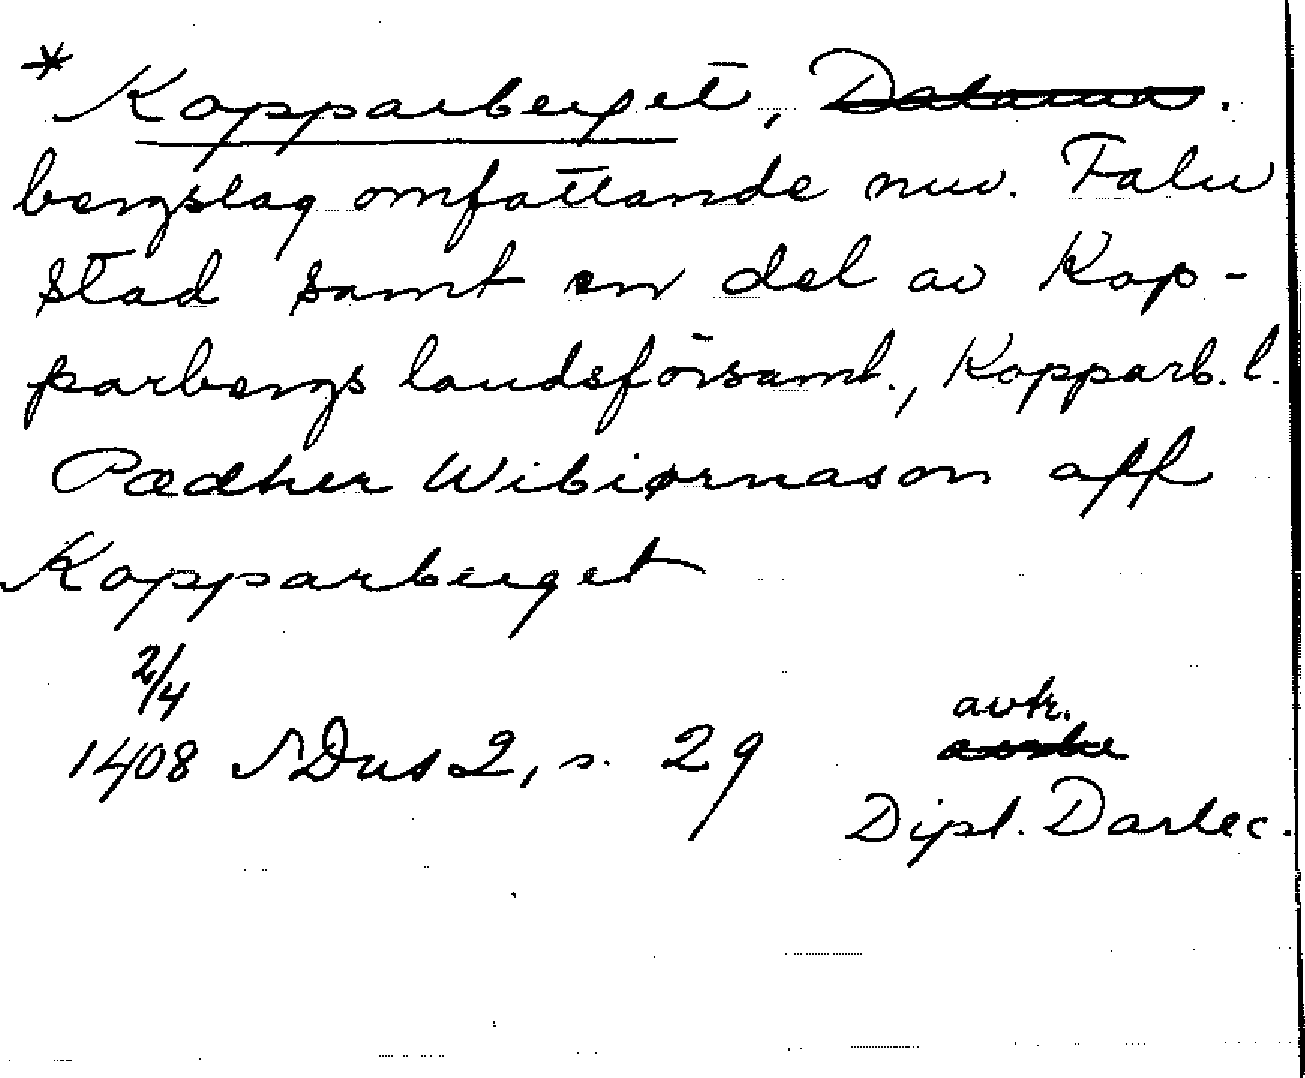 * Kopparberget, Dalarna.
bergslag omfattande nuv. Falu
stad samt en del av Kop-
parbergs landsförsaml., Kopparb. l.
Pædher Wibiørnason aff
Kopparberget
2/4
avkr.
1408 SDns 2, s. 29
Dipl. Dalec.